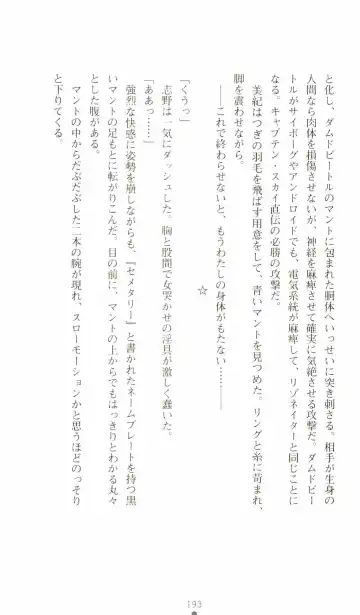 と化し、ダムドビートルのマントに包まれた胴体へいっせいに突き刺さる。相手が生身の
人間なら肉体を損傷させないが、神経を麻痺させて確実に気絶させる攻撃だ。ダムドビー
トルがサイボーグやアンドロイドでも、電気系統が麻痺して、リゾネイターと同じことに
なる。キャプテン・スカイ直伝の必勝の攻撃だ。
美紀はつぎの羽毛を飛ばす用意をして、青いマントを見つめた。リングと糸に苛まれ、
脚を震わせながら。
――これで終わらせないと、もうわたしの身体がもたない――
☆
「くうっ」
志野は一気にダッシュした。胸と股間で女哭かせの淫具が激しく蠢いた。
「ああっ……」
強烈な快感に姿勢を崩しながらも、『セメタリー』と書かれたネームプレートを持つ黒
いマントの足もとに転がりこんだ。目の前に、マントの上からでもはっきりとわかる丸々
とした腹がある。
マントの中からだぶだぶした二本の腕が現れ、スローモーションかと思うほどのっそり
と下りてくる。
193